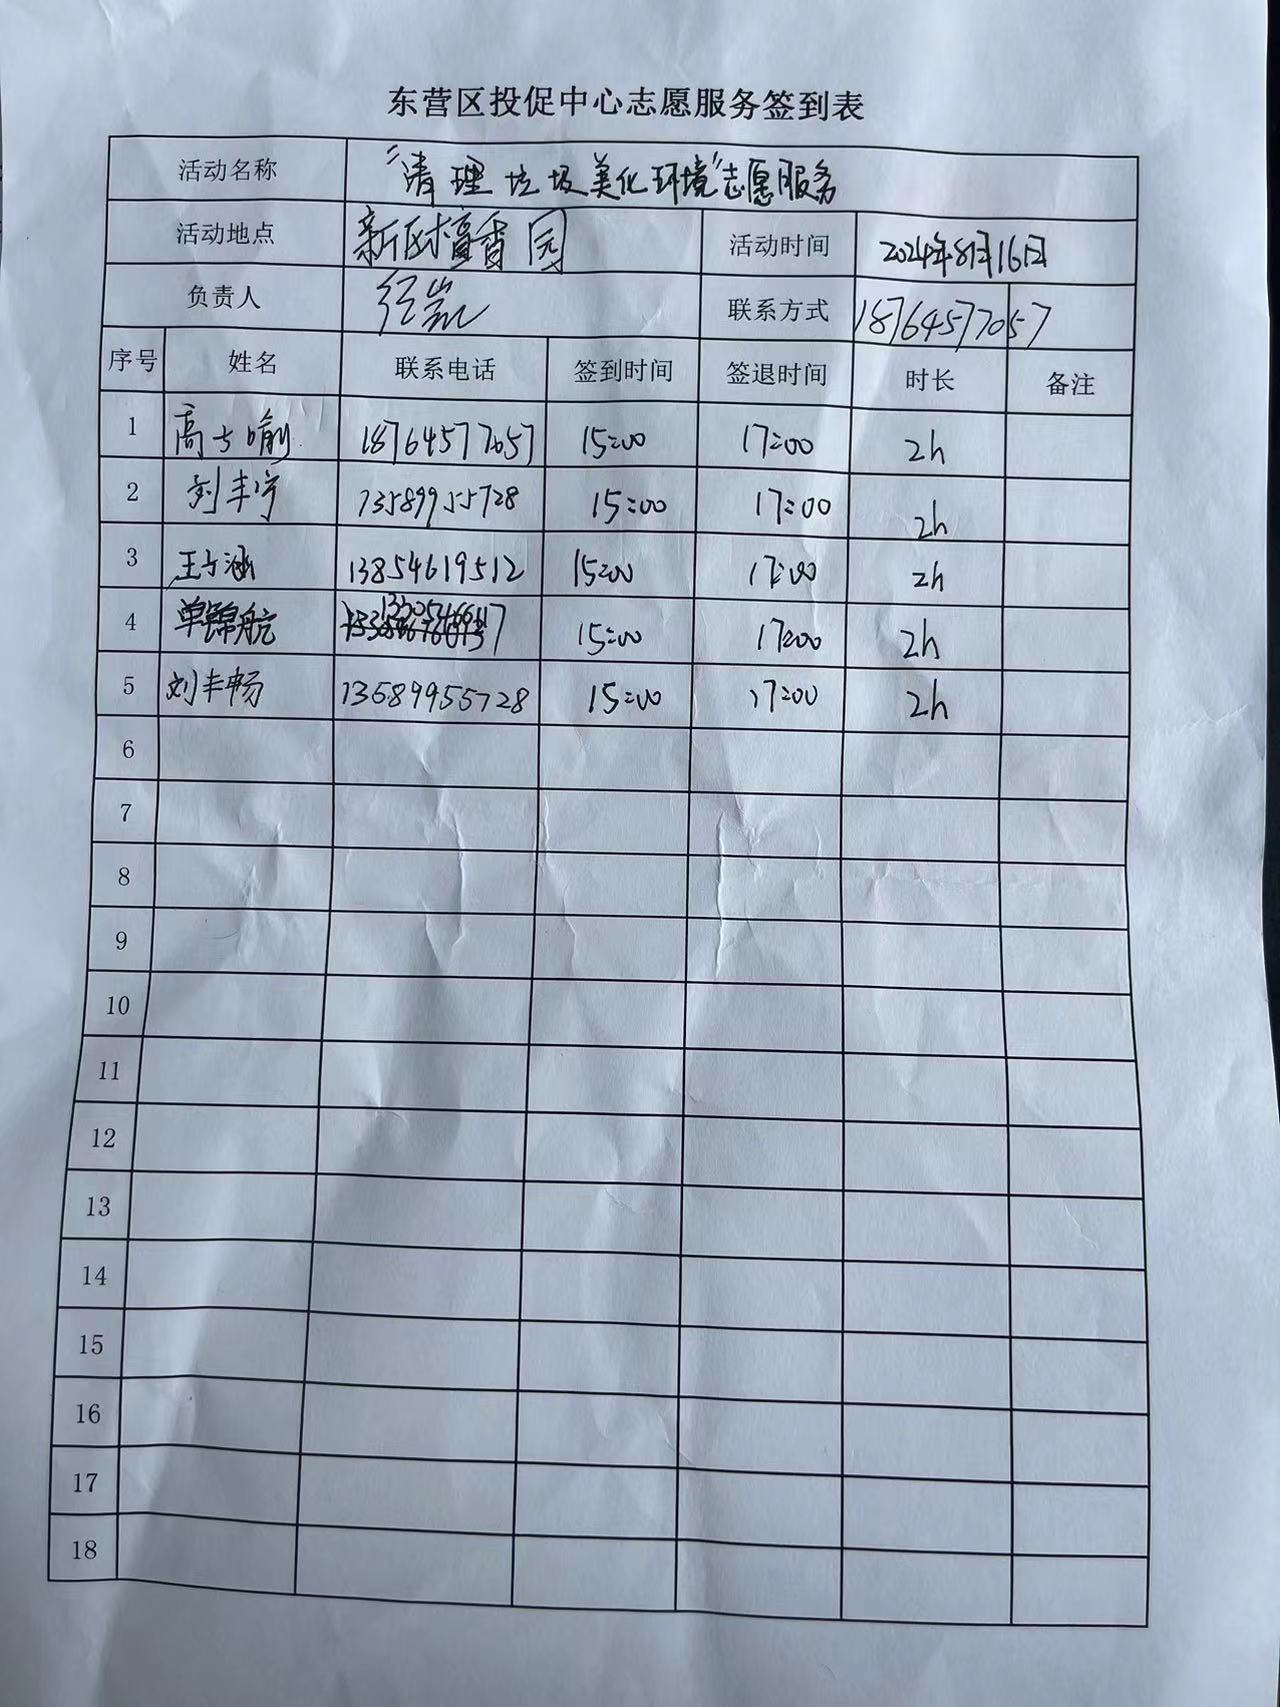 东营区投促中心志愿服务签到表
活动名称 "清理垃圾美化环境"志愿服务
活动地点 新区檀香园 活动时间 2024年8月16日
负责人 任凯 联系方式 18764577057
序号 姓名 联系电话 签到时间 签退时间 时长 备注
1 高士喻 18764577057 15:00 17:00 2h
2 刘丰宁 13589955728 15:00 17:00 2h
3 王士涵 13854619512 15:00 17:00 2h
4 单锦航 15:00 17:00 2h
5 刘丰畅 13589955728 15:00 17:00 2h
6
7
8
9
10
11
12
13
14
15
16
17
18